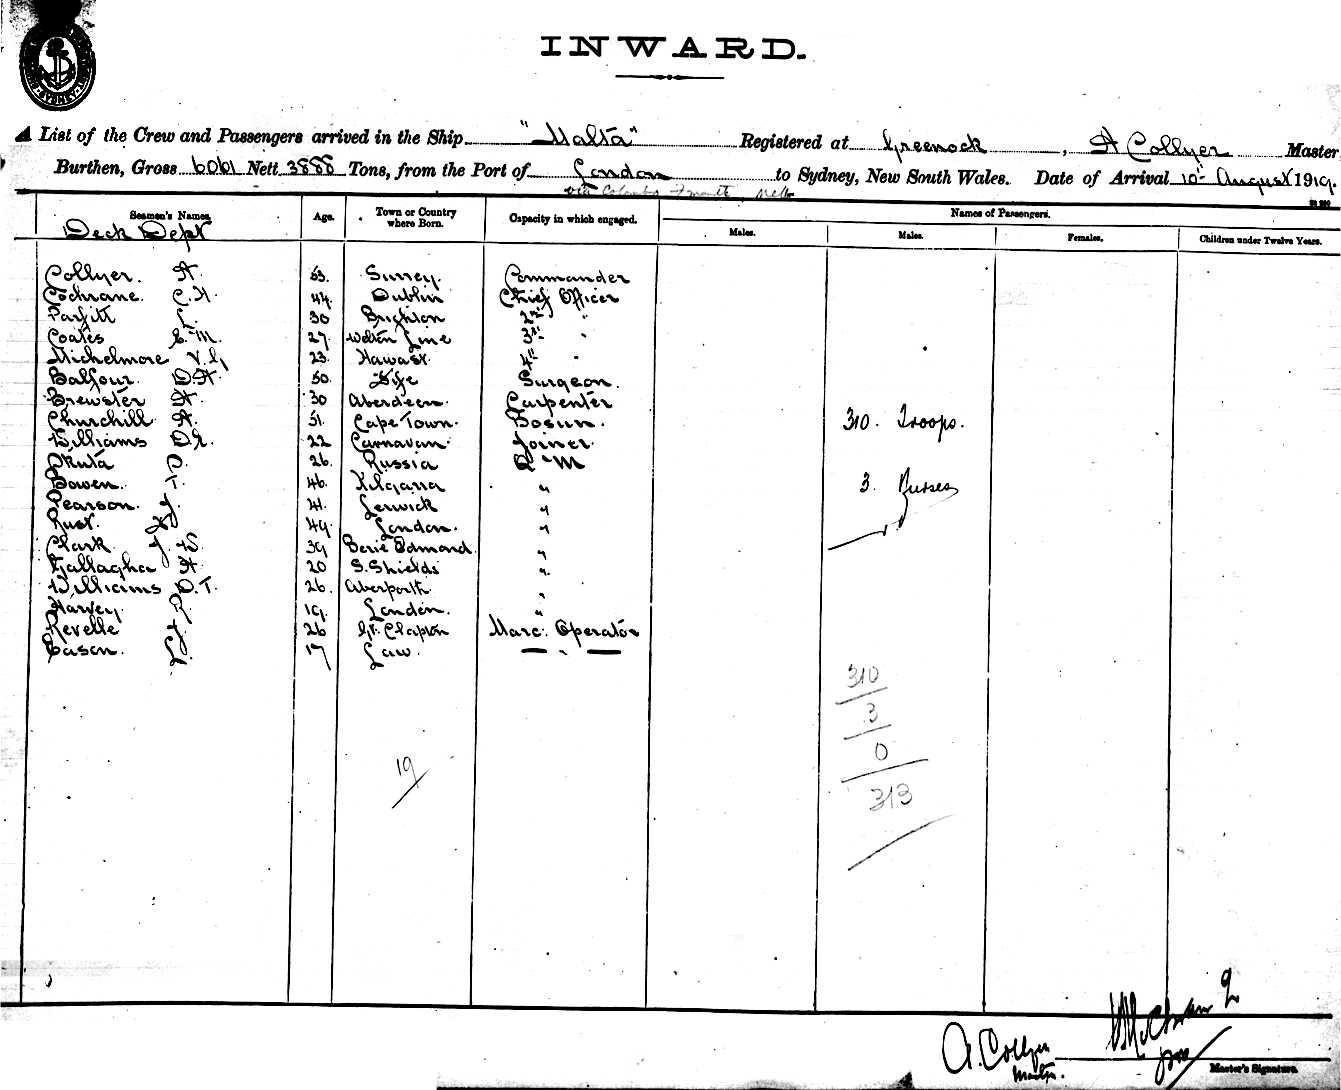 INWARD.
A List of the Crew and Passengers arrived in the Ship "Malta" Registered at Greenock, A Collyer Master
Burthen, Gross 6061 Nett 3888 Tons, from the Port of London to Sydney, New South Wales. Date of Arrival 10 August 1919.
via Colombo
Seamen's Names. Age. Town or Country where Born. Capacity in which engaged. Names of Passengers.
Males. Males. Females. Children under Twelve Years.
Deck Dept
Collyer A. 53. Surrey. Commander
Cochrane. C.H. 44. Dublin Chief Officer
Parfitt L. 30 Brighton 2nd "
Coates E.M. 27. 3rd "
Michelmore 23. 4th "
Balfour. D.A. 50. Fife Surgeon.
Brewster A. 30 Aberdeen. Carpenter
Churchill A. 51. Cape Town. Bosun.
Williams D.E. 22 Carnavan. Joiner.
O. 26. Russia Q M
Bowen. T. 46. "
Pearson. J. 41. Lerwick "
Rust. 49 London. "
Clark J S. 39 "
Gallagha A. 20 S. Shields "
Williams D.T. 26. Aberporth. "
Harvey. R. 19. London. "
Revelle J. 26 Clapton Marc. Operator
Eason. L. 17 Law. "
310. Troops.
3. Nurses
310
3
0
313
19
A. Collyer
Master.
Master's Signature.